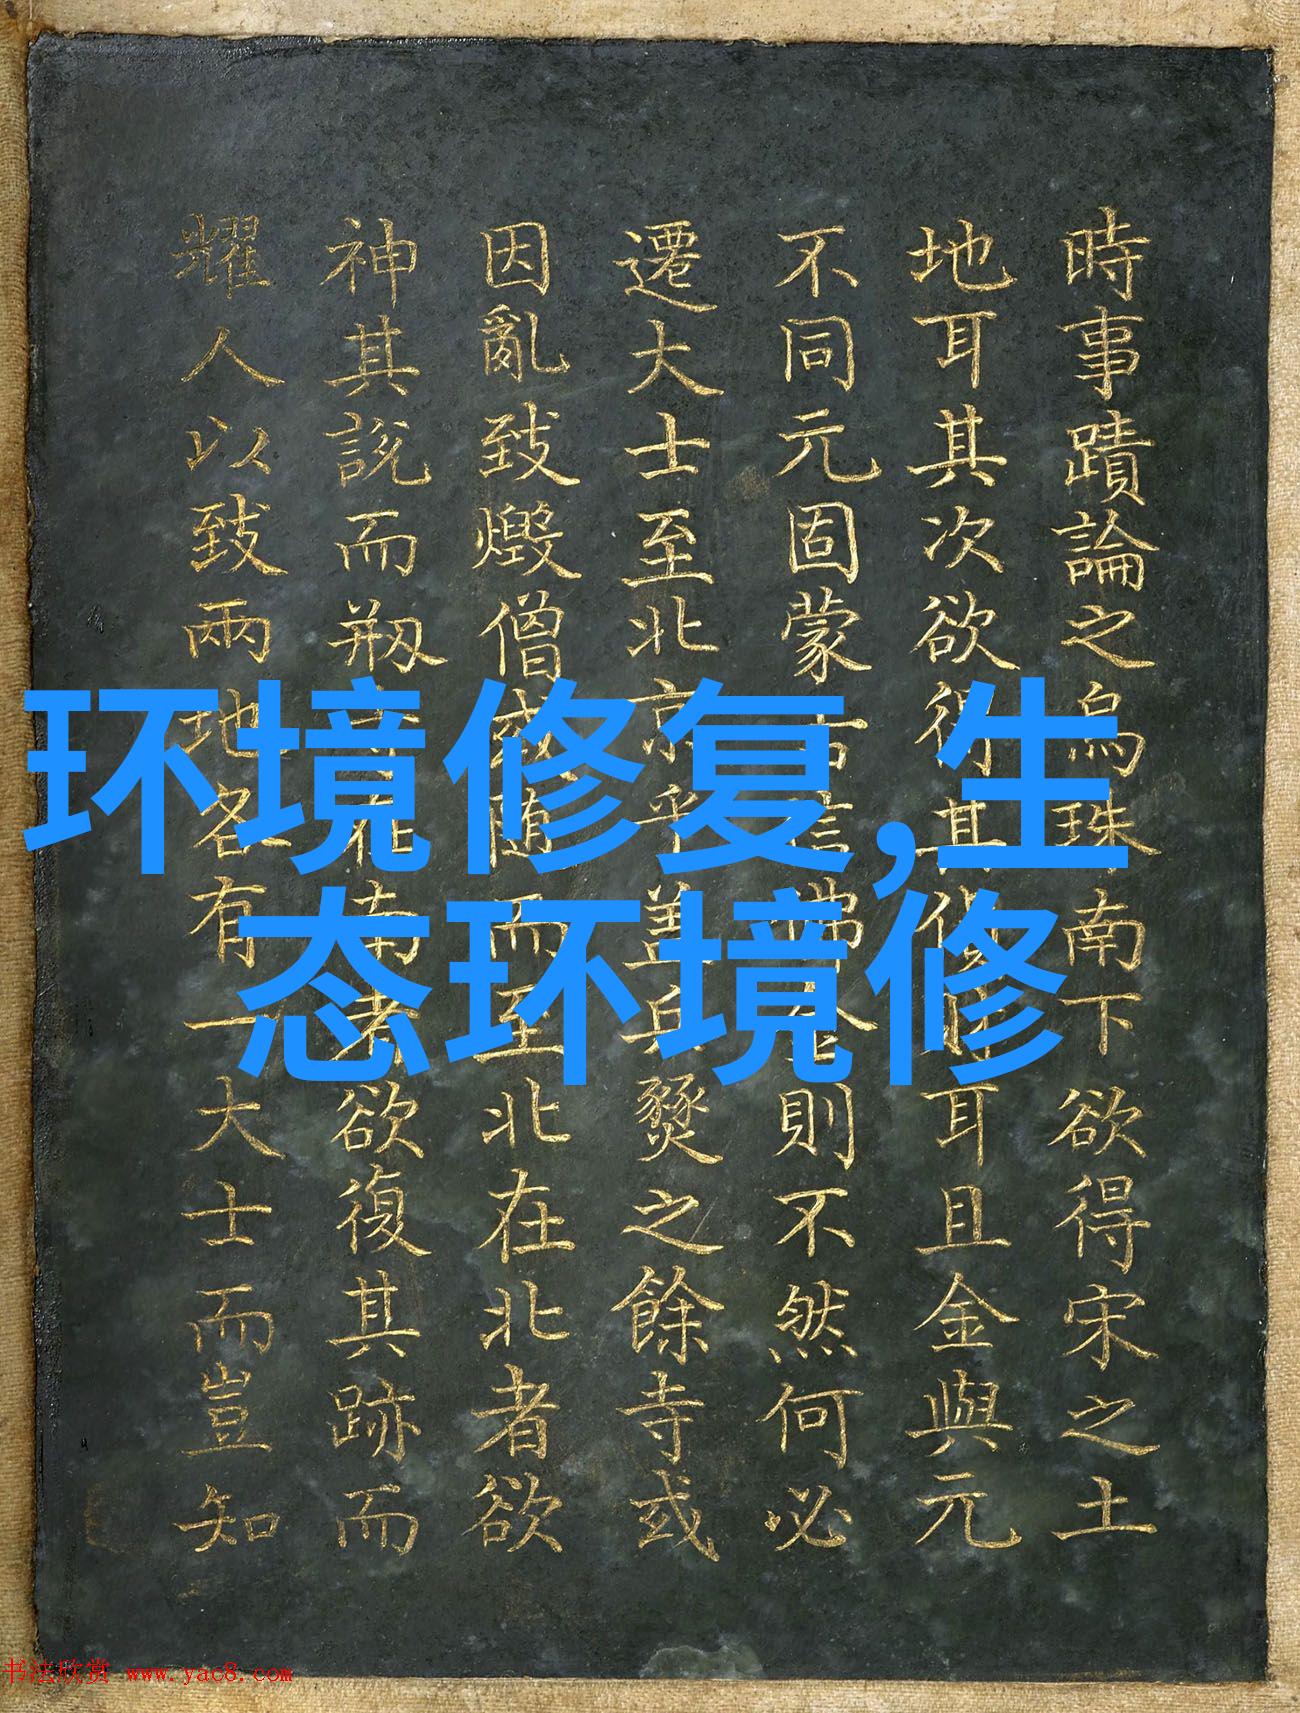 時事蹟論之烏珠南下欲得宋之土
地耳其次欲其耳且金與元
不同元固蒙古信佛金則不然何必
遷大士至北京乎蓋兵燹之餘寺或
因亂致燬僧或隨而至北在北者欲
神其說而剏在南者欲復其跡而
耀人以致兩地各有一大士而豈知
环境修复,生
态环境修
书法欣赏 www.yac8.com